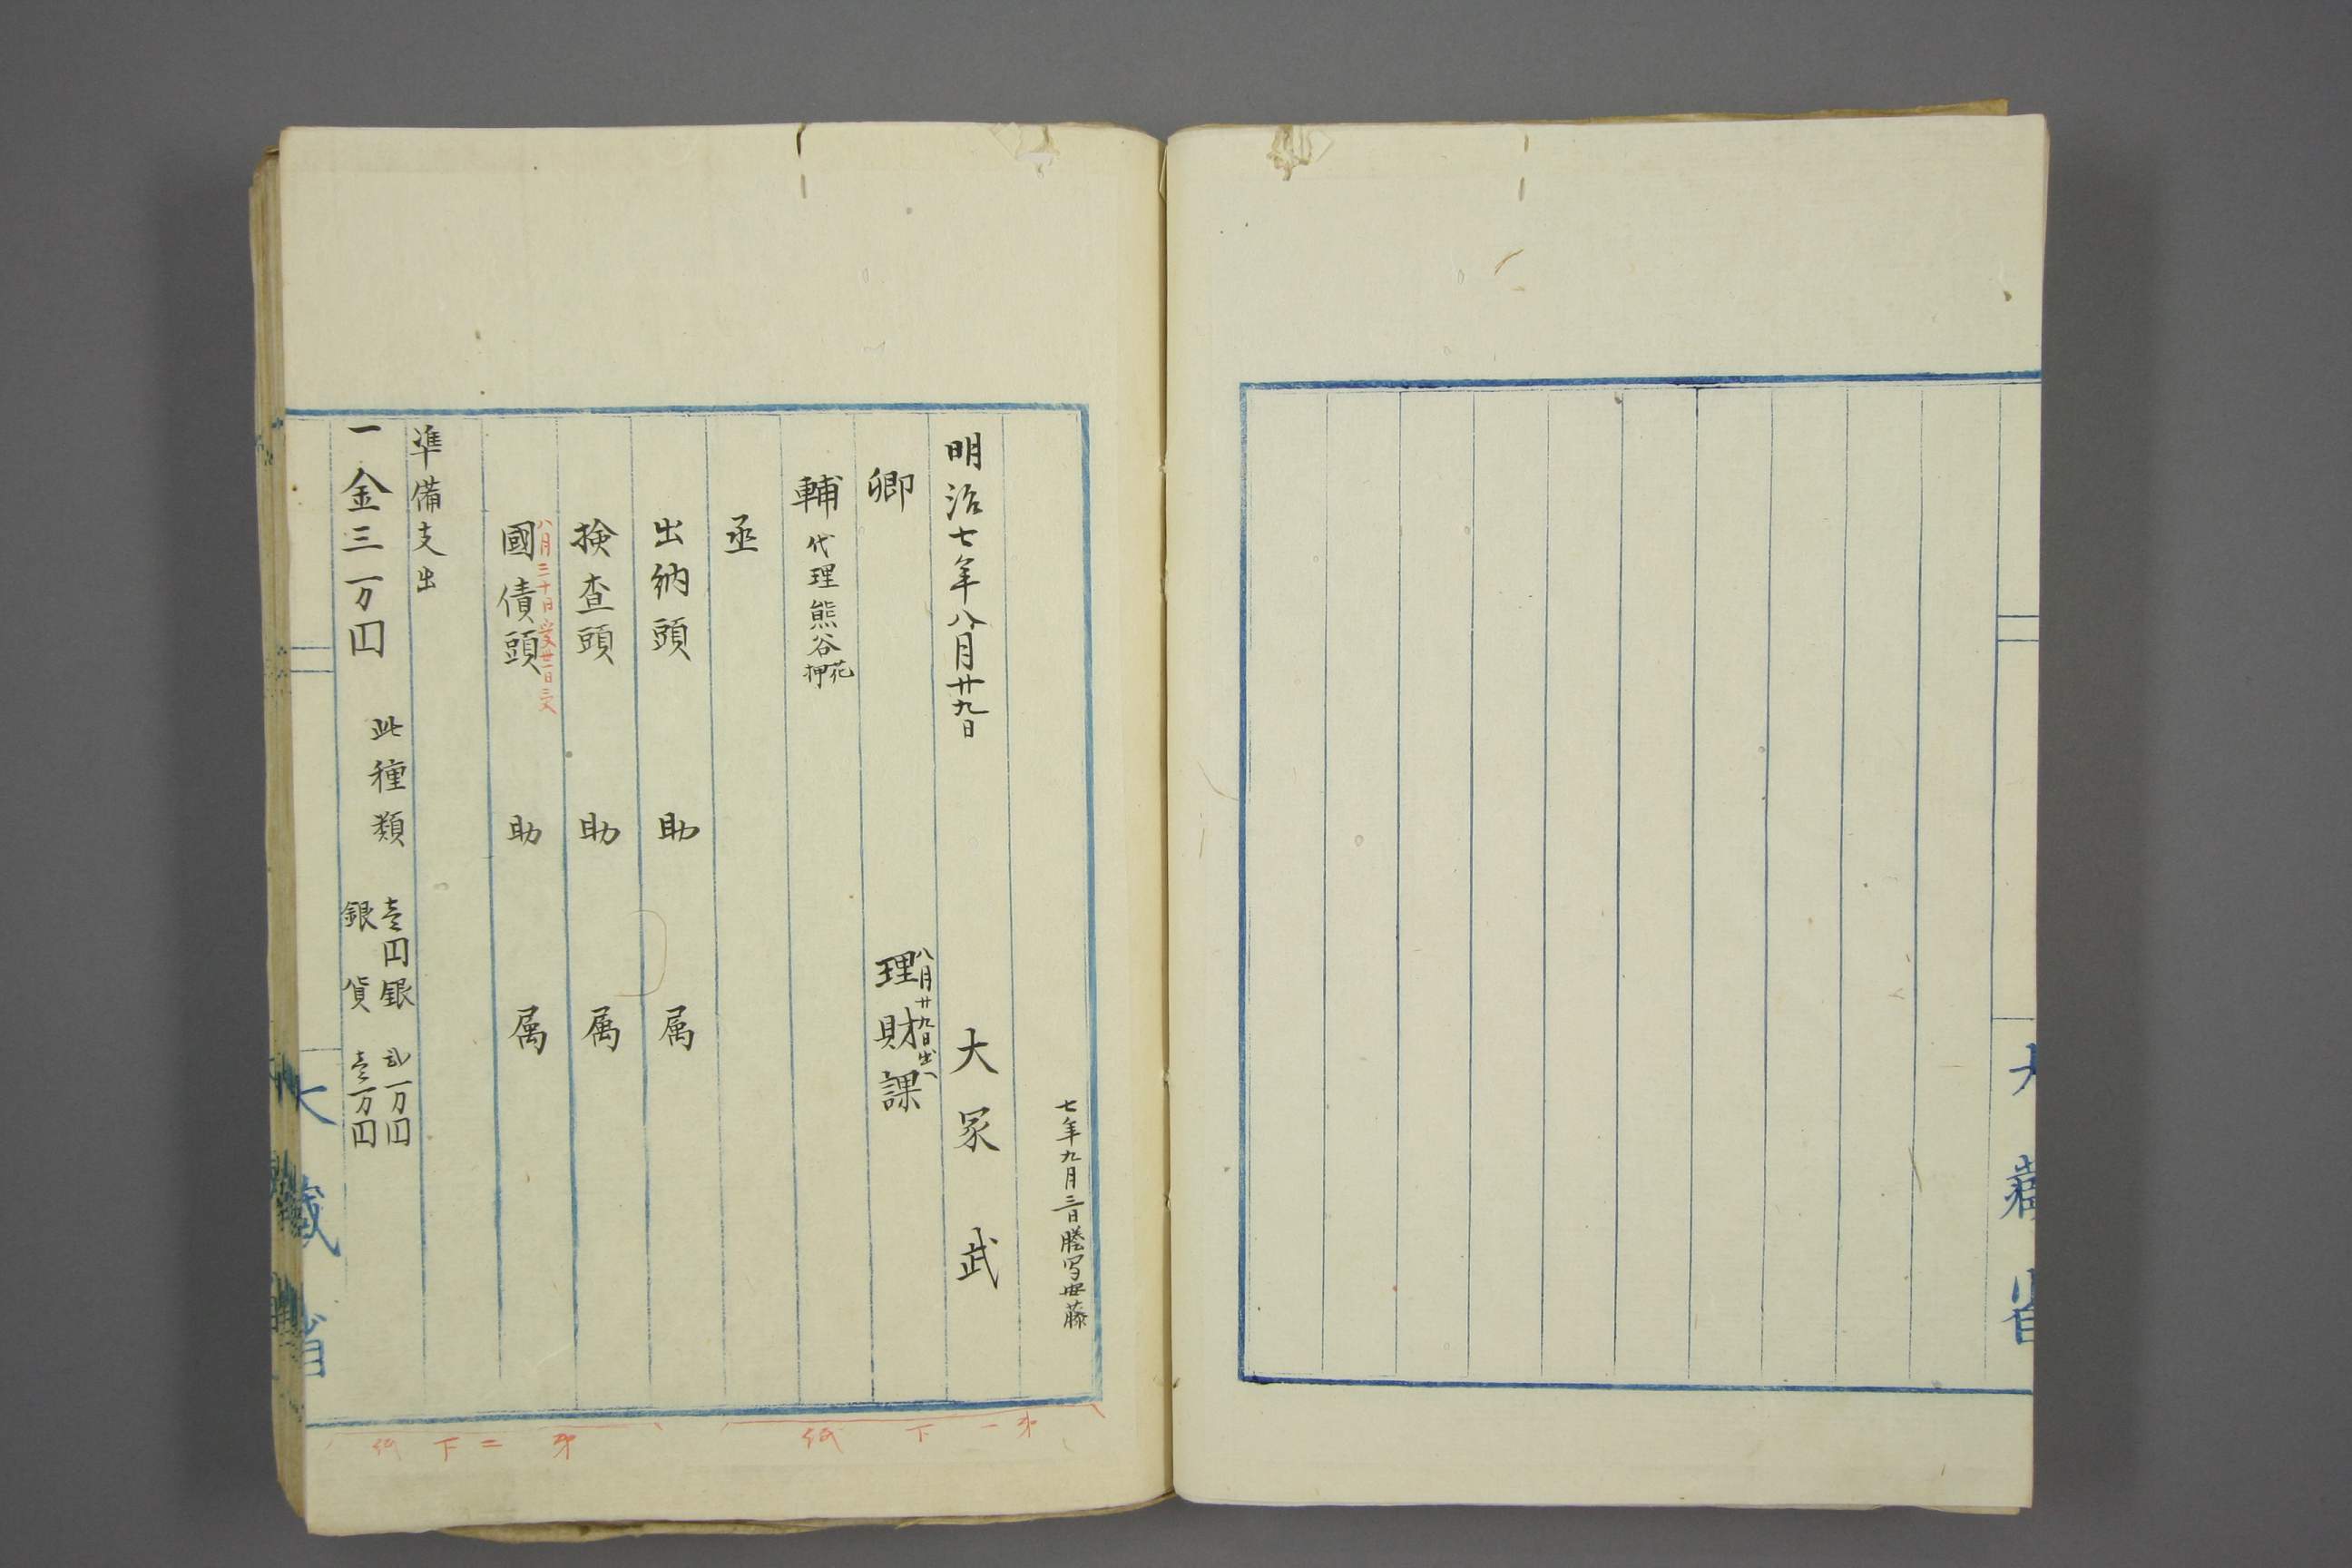 大藏省
七年九月三日謄写安藤
明治七年八月廿九日　大冢武
卿　八月廿九日出ス　理財課
輔　代理熊谷花押
丞
出納頭　助　属
検査頭　助　属
八月三十日受廿一日三文
國債頭　助　属
準備支出
一金三万円　此種類　壱円銀　弐万円
銀貨　壱万円
大藏省
第一下紙
第二下紙